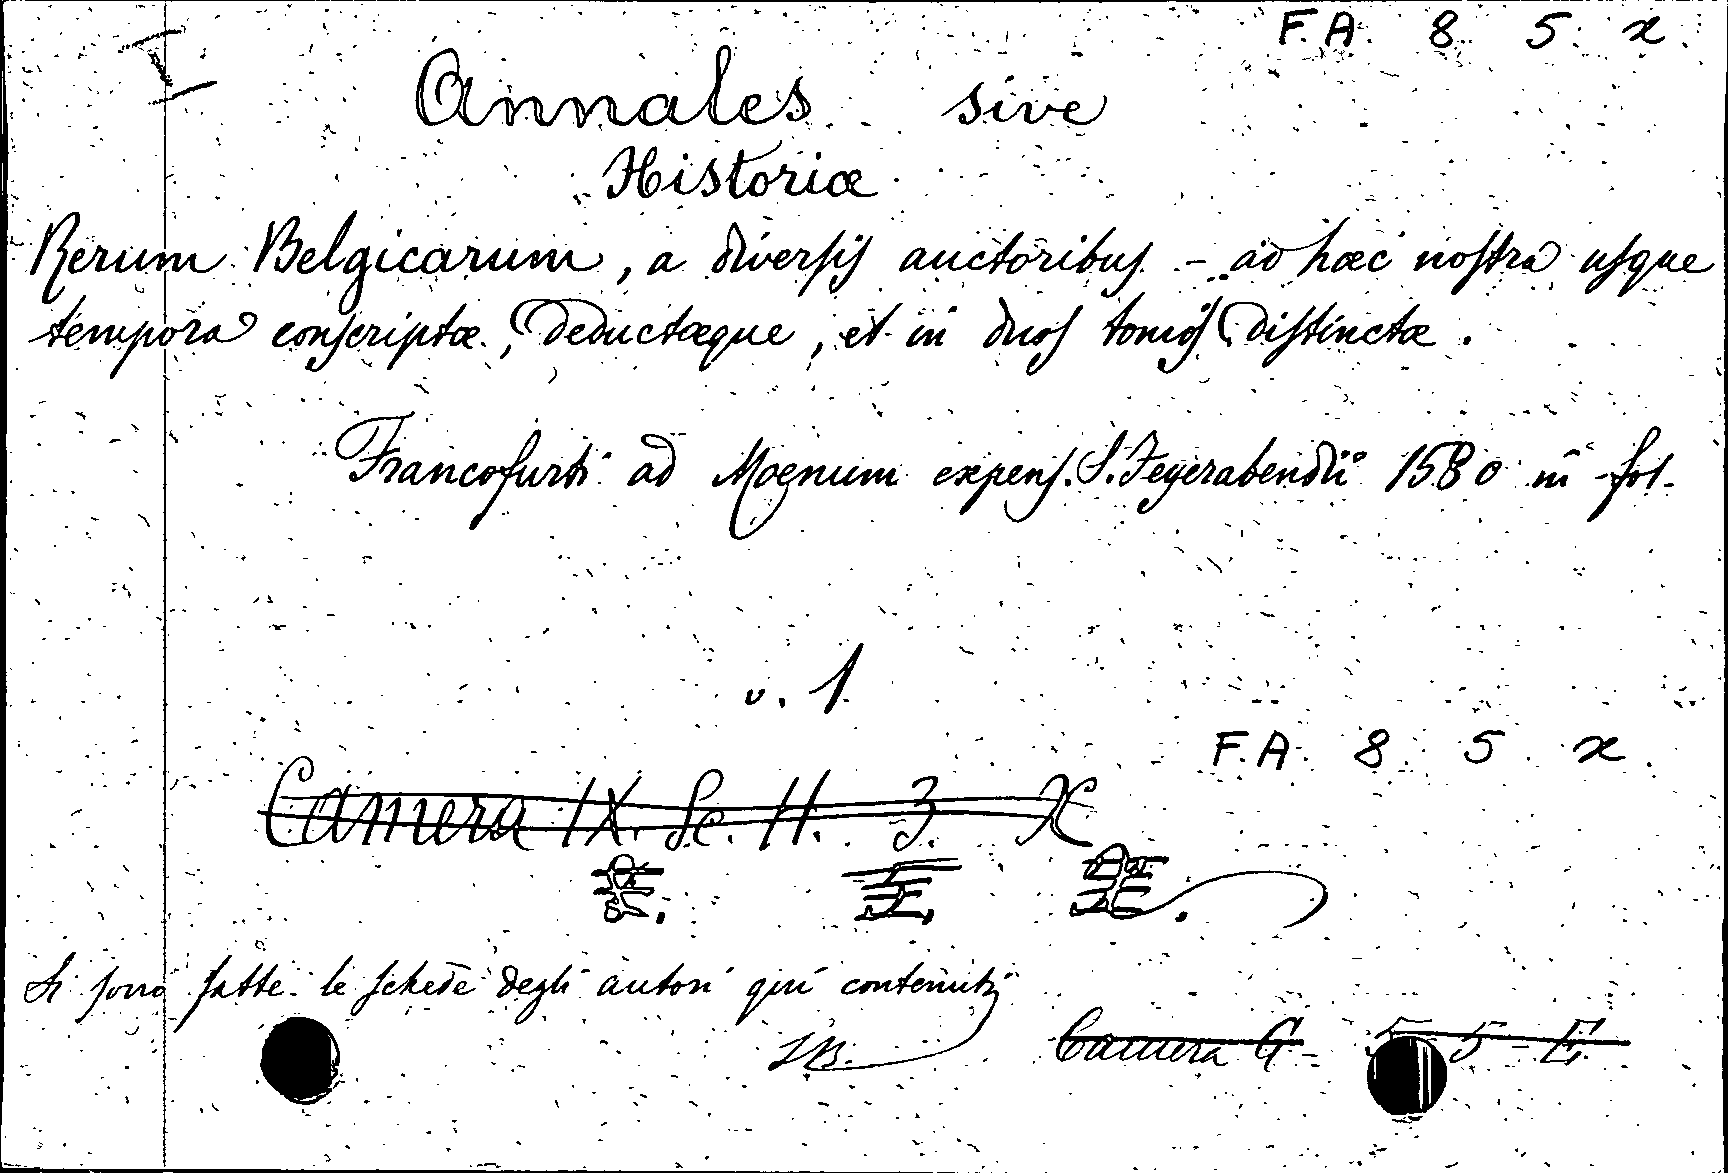 F. A. 8 5. x.
I
Annales sive
Historiæ
Rerum Belgicarum, a diversis auctoribus - ad hæc nostra usque
tempora conscriptæ, deductæque, et in duos tomos distinctæ.
Francofurti ad Moenum expens. S. Feyerabendii 1580 in fol.
v. 1
F. A. 8 5 x.
Camera IX. Sc. 11. 3. X
Si sono fatte le schede degli autori qui contenuti
Camera G - 5 - 5 - E.